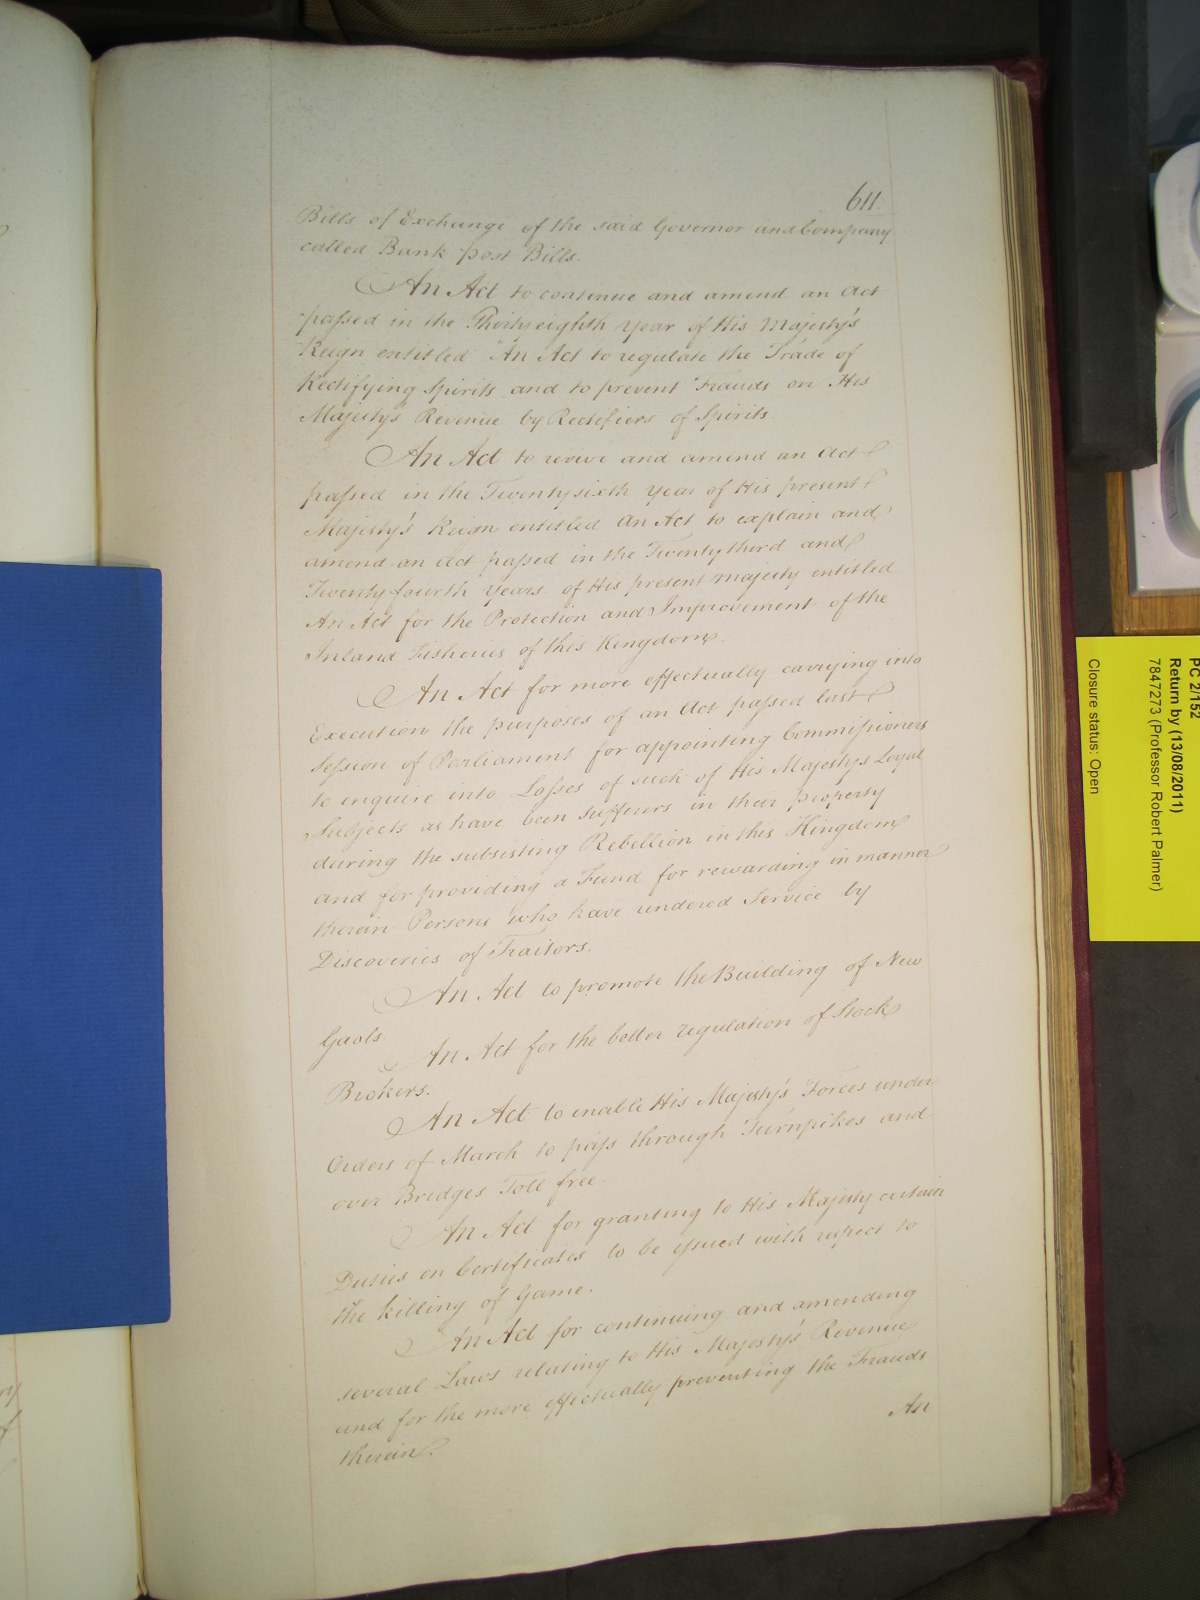 611.
Bills of Exchange of the said Governor and Company
called Bank post Bills.
An Act to continue and amend an Act
passed in the Thirty eighth year of His Majesty's
Reign entitled An Act to regulate the Trade of
Rectifying Spirits and to prevent Frauds on His
Majesty's Revenue by Rectifiers of Spirits.
An Act to revive and amend an Act
passed in the Twenty sixth year of His present
Majesty's Reign entitled An Act to explain and
amend an Act passed in the Twenty third and
Twenty fourth years of His present majesty entitled
An Act for the Protection and Improvement of the
Inland Fisheries of this Kingdom.
An Act for more effectually carrying into
Execution the purposes of an Act passed last
Session of Parliament for appointing Commissioners
to enquire into Losses of such of His Majestys Loyal
Subjects as have been sufferers in their property
during the subsisting Rebellion in this Kingdom
and for providing a Fund for rewarding in manner
therein Persons who have rendered Service by
Discoveries of Traitors.
An Act to promote the Building of New
Gaols.
An Act for the better regulation of Stock
Brokers.
An Act to enable His Majesty's Forces under
Orders of March to pass through Turnpikes and
over Bridges Toll free.
An Act for granting to His Majesty certain
Duties on Certificates to be issued with respect to
the killing of Game.
An Act for continuing and amending
several Laws relating to His Majesty's Revenue
and for the more effectually preventing the Frauds
therein.
An
PC 2/152
Return by (13/08/2011)
7847273 (Professor Robert Palmer)
Closure status: Open